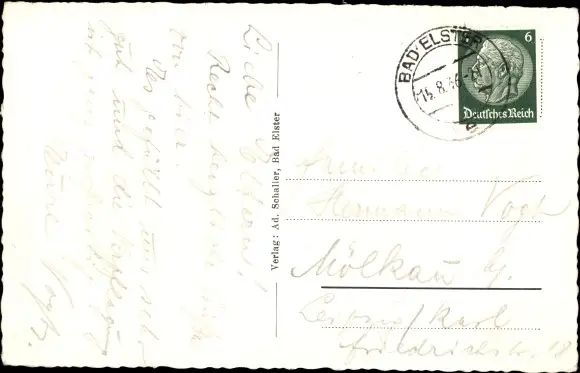 Liebe Eltern!
Recht herzliche Grüße
von hier.
Es gefällt uns sehr
gut und die Verpflegung
ist
Eure Vogts.
Verlag: Ad. Schaller, Bad Elster
BAD ELSTER
6
Deutsches Reich
Familie
Hermann Vogt
Mölkau b/
Leipzig/Karl
friedrichstr. 18